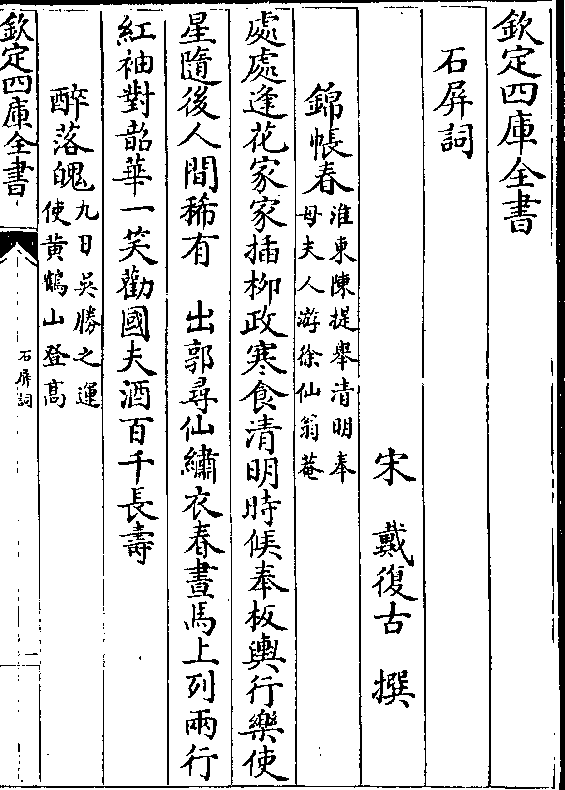 欽定四庫全書
石屏詞
宋　戴復古　撰
錦帳春淮東陳提舉清明奉
母夫人游徐仙翁菴
處處逢花家家插柳政寒食清明時候奉板輿行樂使
星隨後人間稀有　出郭尋仙繡衣春晝馬上列兩行
紅袖對韶華一笑勸國夫酒百千長壽
醉落魄九日吳勝之運
使黄鶴山登高
欽定四庫全書
石屏詞
一